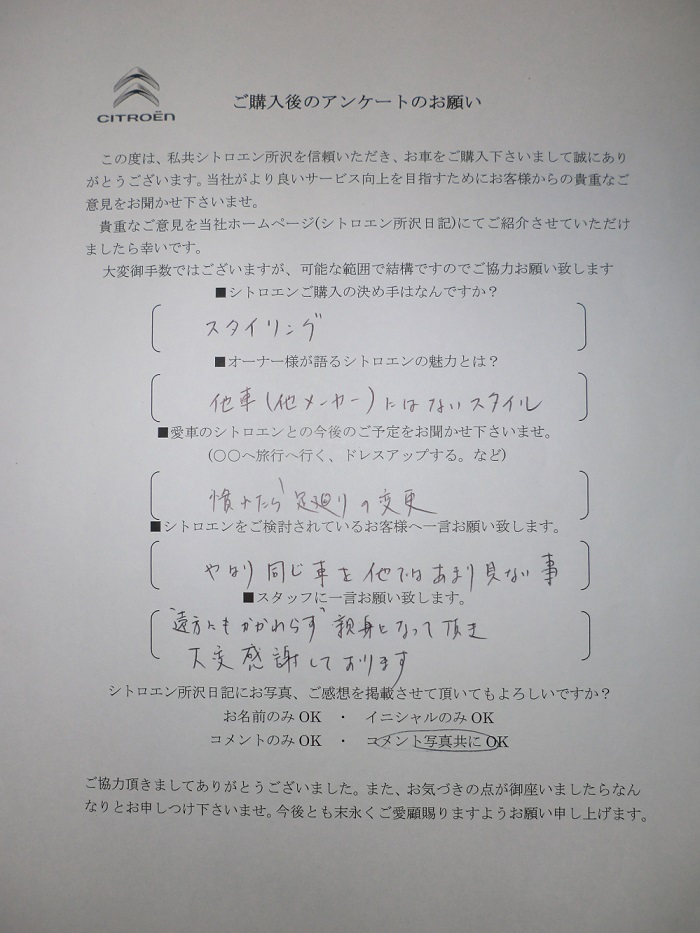 CITROËN
ご購入後のアンケートのお願い
この度は、私共シトロエン所沢を信頼いただき、お車をご購入下さいまして誠にあり
がとうございます。当社がより良いサービス向上を目指すためにお客様からの貴重なご
意見をお聞かせ下さいませ。
貴重なご意見を当社ホームページ(シトロエン所沢日記)にてご紹介させていただけ
ましたら幸いです。
大変御手数ではございますが、可能な範囲で結構ですのでご協力お願い致します
■シトロエンご購入の決め手はなんですか？
スタイリング
■オーナー様が語るシトロエンの魅力とは？
他車(他メーカー)にはないスタイル
■愛車のシトロエンとの今後のご予定をお聞かせ下さいませ。
(○○へ旅行へ行く、ドレスアップする。など)
慣れたら、足廻りの変更
■シトロエンをご検討されているお客様へ一言お願い致します。
やはり同じ車を他ではあまり見ない事
■スタッフに一言お願い致します。
遠方にもかかわらず、親身になって頂き
大変感謝しております
シトロエン所沢日記にお写真、ご感想を掲載させて頂いてもよろしいですか？
お名前のみOK ・ イニシャルのみOK
コメントのみOK ・ コメント写真共にOK
ご協力頂きましてありがとうございました。また、お気づきの点が御座いましたらなん
なりとお申しつけ下さいませ。今後とも末永くご愛顧賜りますようお願い申し上げます。